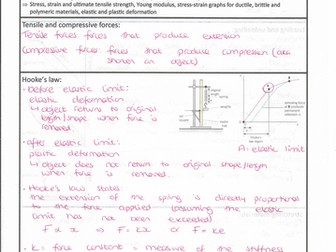 ⇒ Stress, strain and ultimate tensile strength, Young modulus, stress-strain graphs for ductile, brittle and
polymeric materials, elastic and plastic deformation
Tensile and compressive forces:
Tensile forces: forces that produce extension
Compressive forces: forces that produce compression (
shorten an object)
Hooke's law:
• Before elastic limit:
elastic deformation
↳ object returns to original
length/shape when force
is removed.
• After elastic limit:
plastic deformation
↳ object does not return to original shape/length
when force is removed.
A: elastic limit
• Hooke's law states
the extension of the spring is directly proportional
to the force applied (assuming the elastic
limit has not been exceeded)
F ∝ x ⇒ F = kx or F = ke
• k = force constant = measure of the stiffness